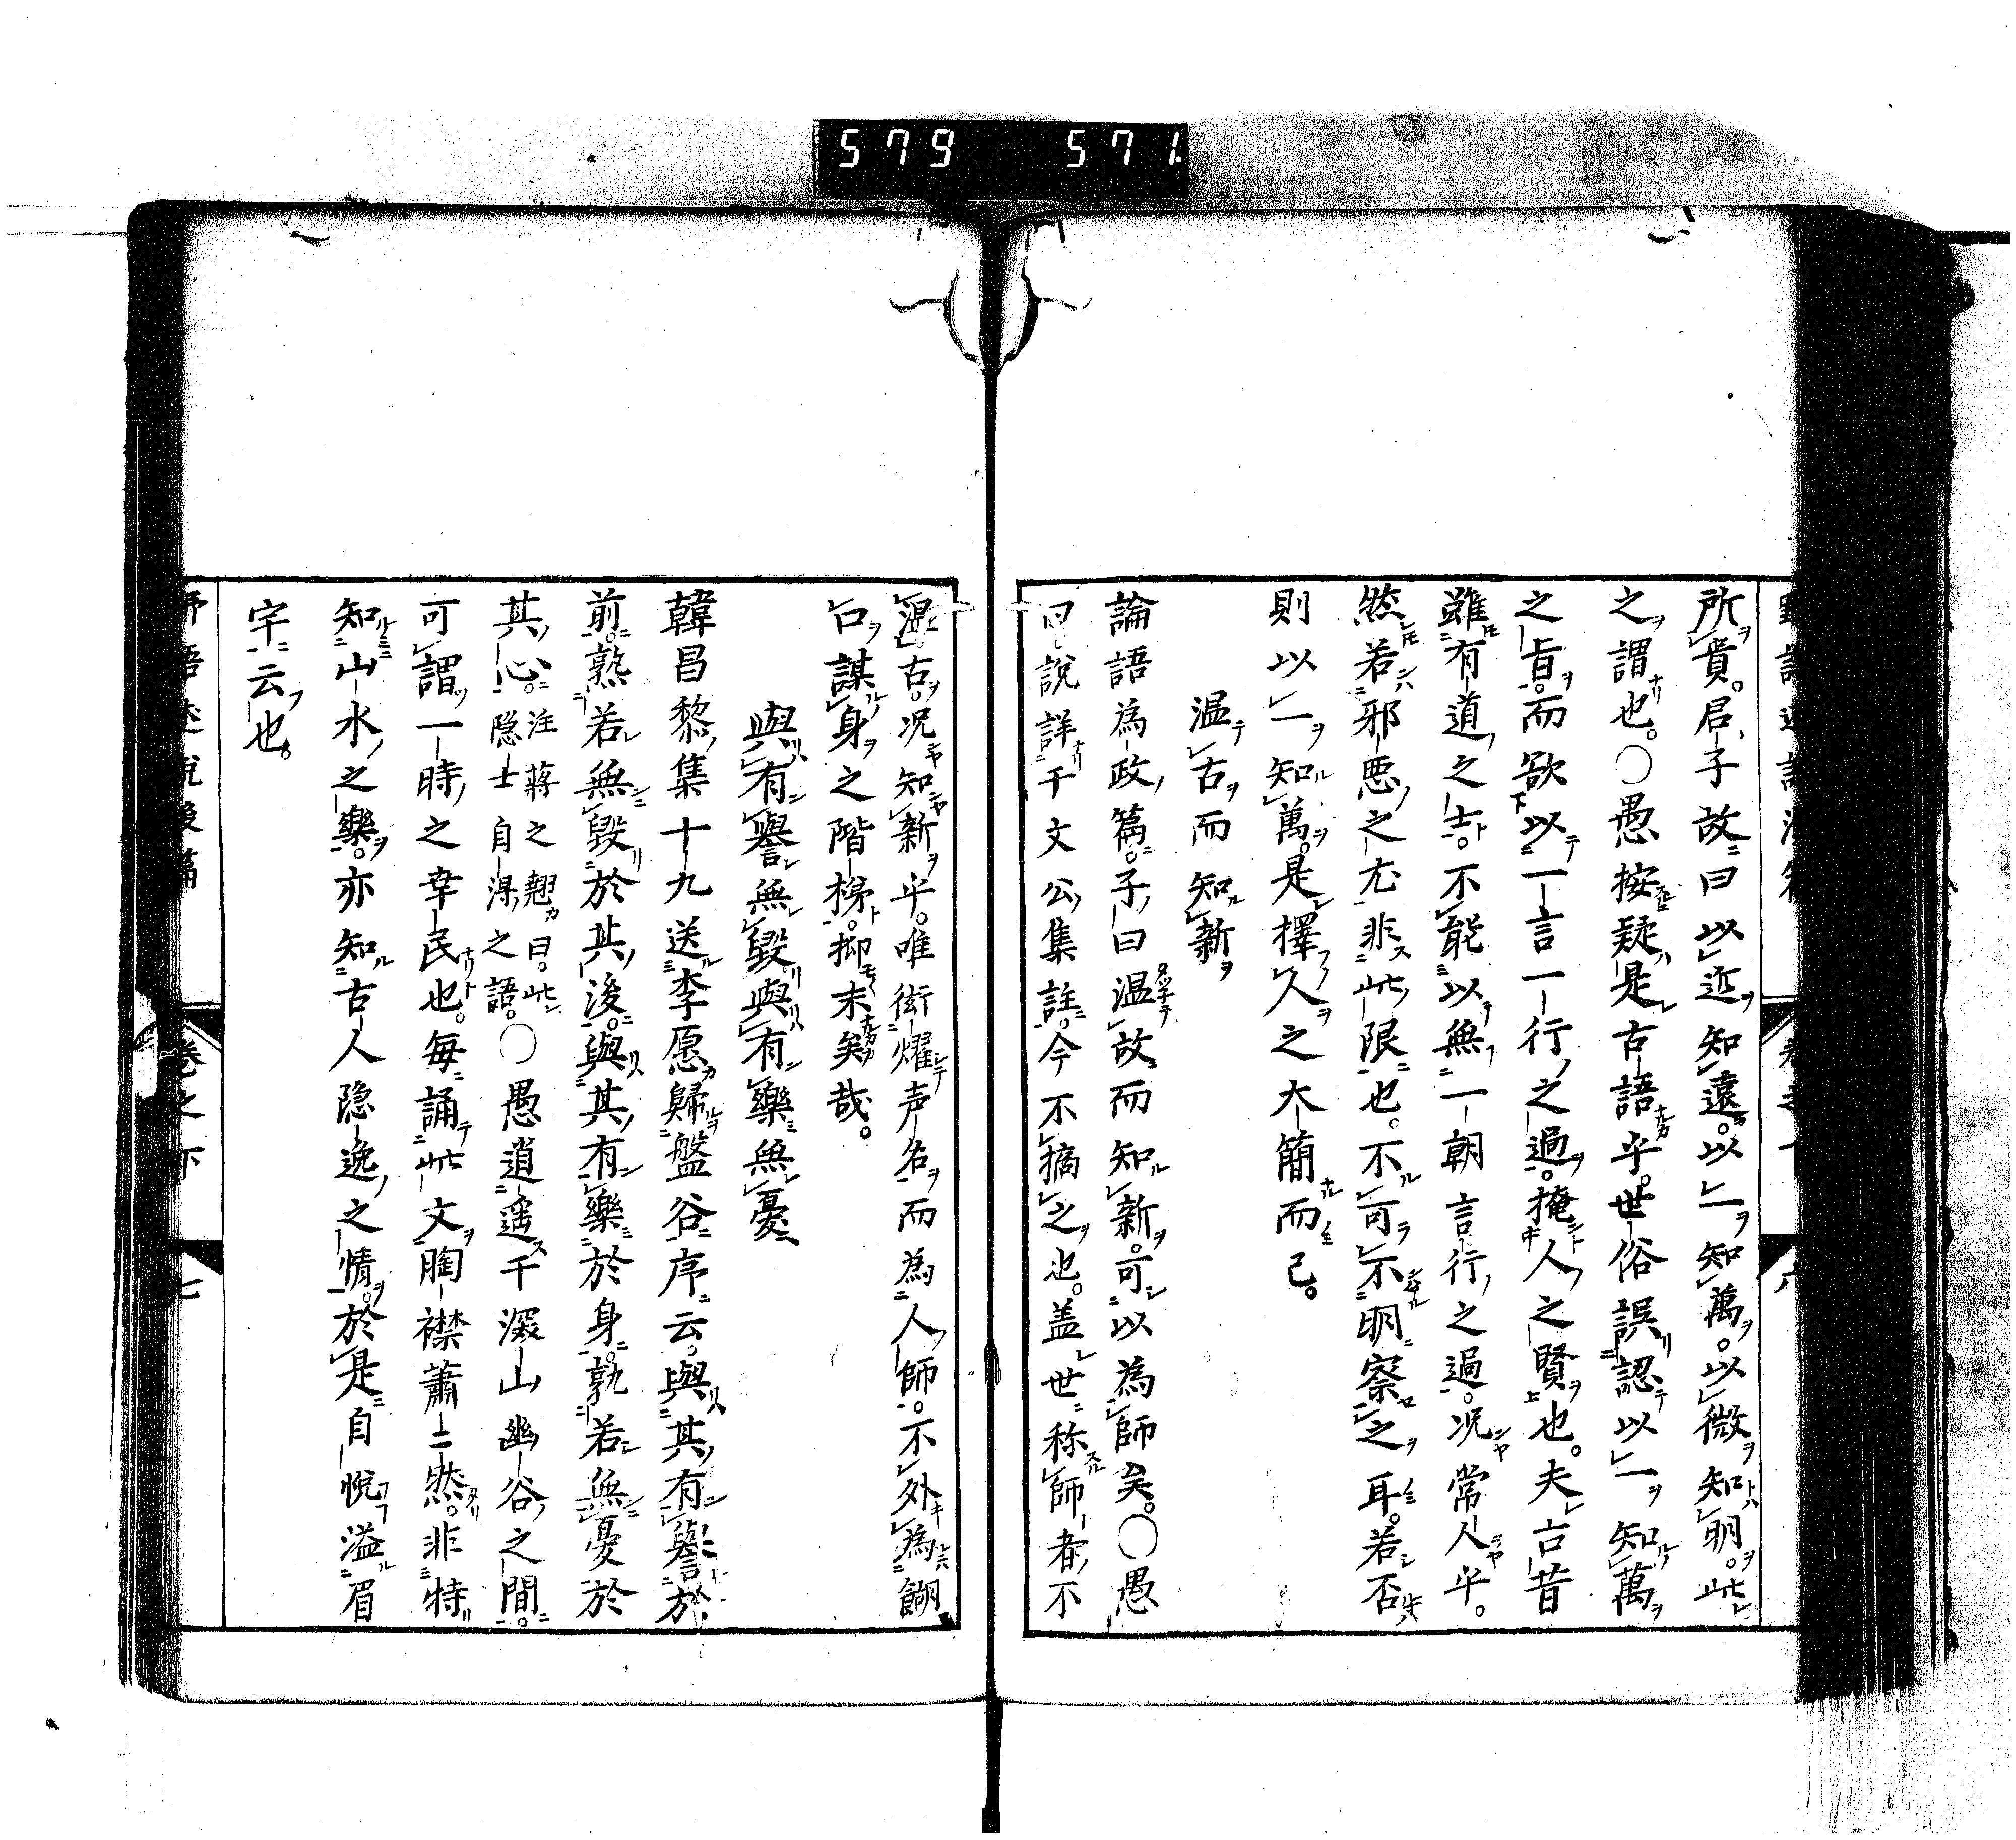 579 571
所貴君子故曰以近知遠。以一知萬。以微知明。此
之謂也。〇愚按疑是古語乎。世俗誤認以一知萬
之旨。而欲以一言一行之過。掩人之賢也。夫古昔
雖有道之士。不能以無一朝言行之過。况常人乎。
然若邪悪之尤非此限也。不可不明察之耳。若否
則以一知萬。是擇人之大簡而已。
温古而知新
論語為政篇。子曰温故而知新。可以為師矣。〇愚
曰說詳于文公集註。今不摘之也。盖世称師者不
温古。况知新乎。唯衒燿声名而為人師。不外為餬
口謀身之階梯。抑末矣哉。
與有譽無毀與有樂無憂
韓昌黎集十九送李愿歸盤谷序云。與其有譽於
前。孰若無毀於其後。與其有樂於身。孰若無憂於
其心。注蔣之翹曰。此隠士自得之語。〇愚逍遥于深山幽谷之間。
可謂一時之幸民也。毎誦此文胸襟蕭〻然。非特
知山水之樂。亦知古人隠逸之情。於是自悅溢眉
宇云也。
卷之下 七